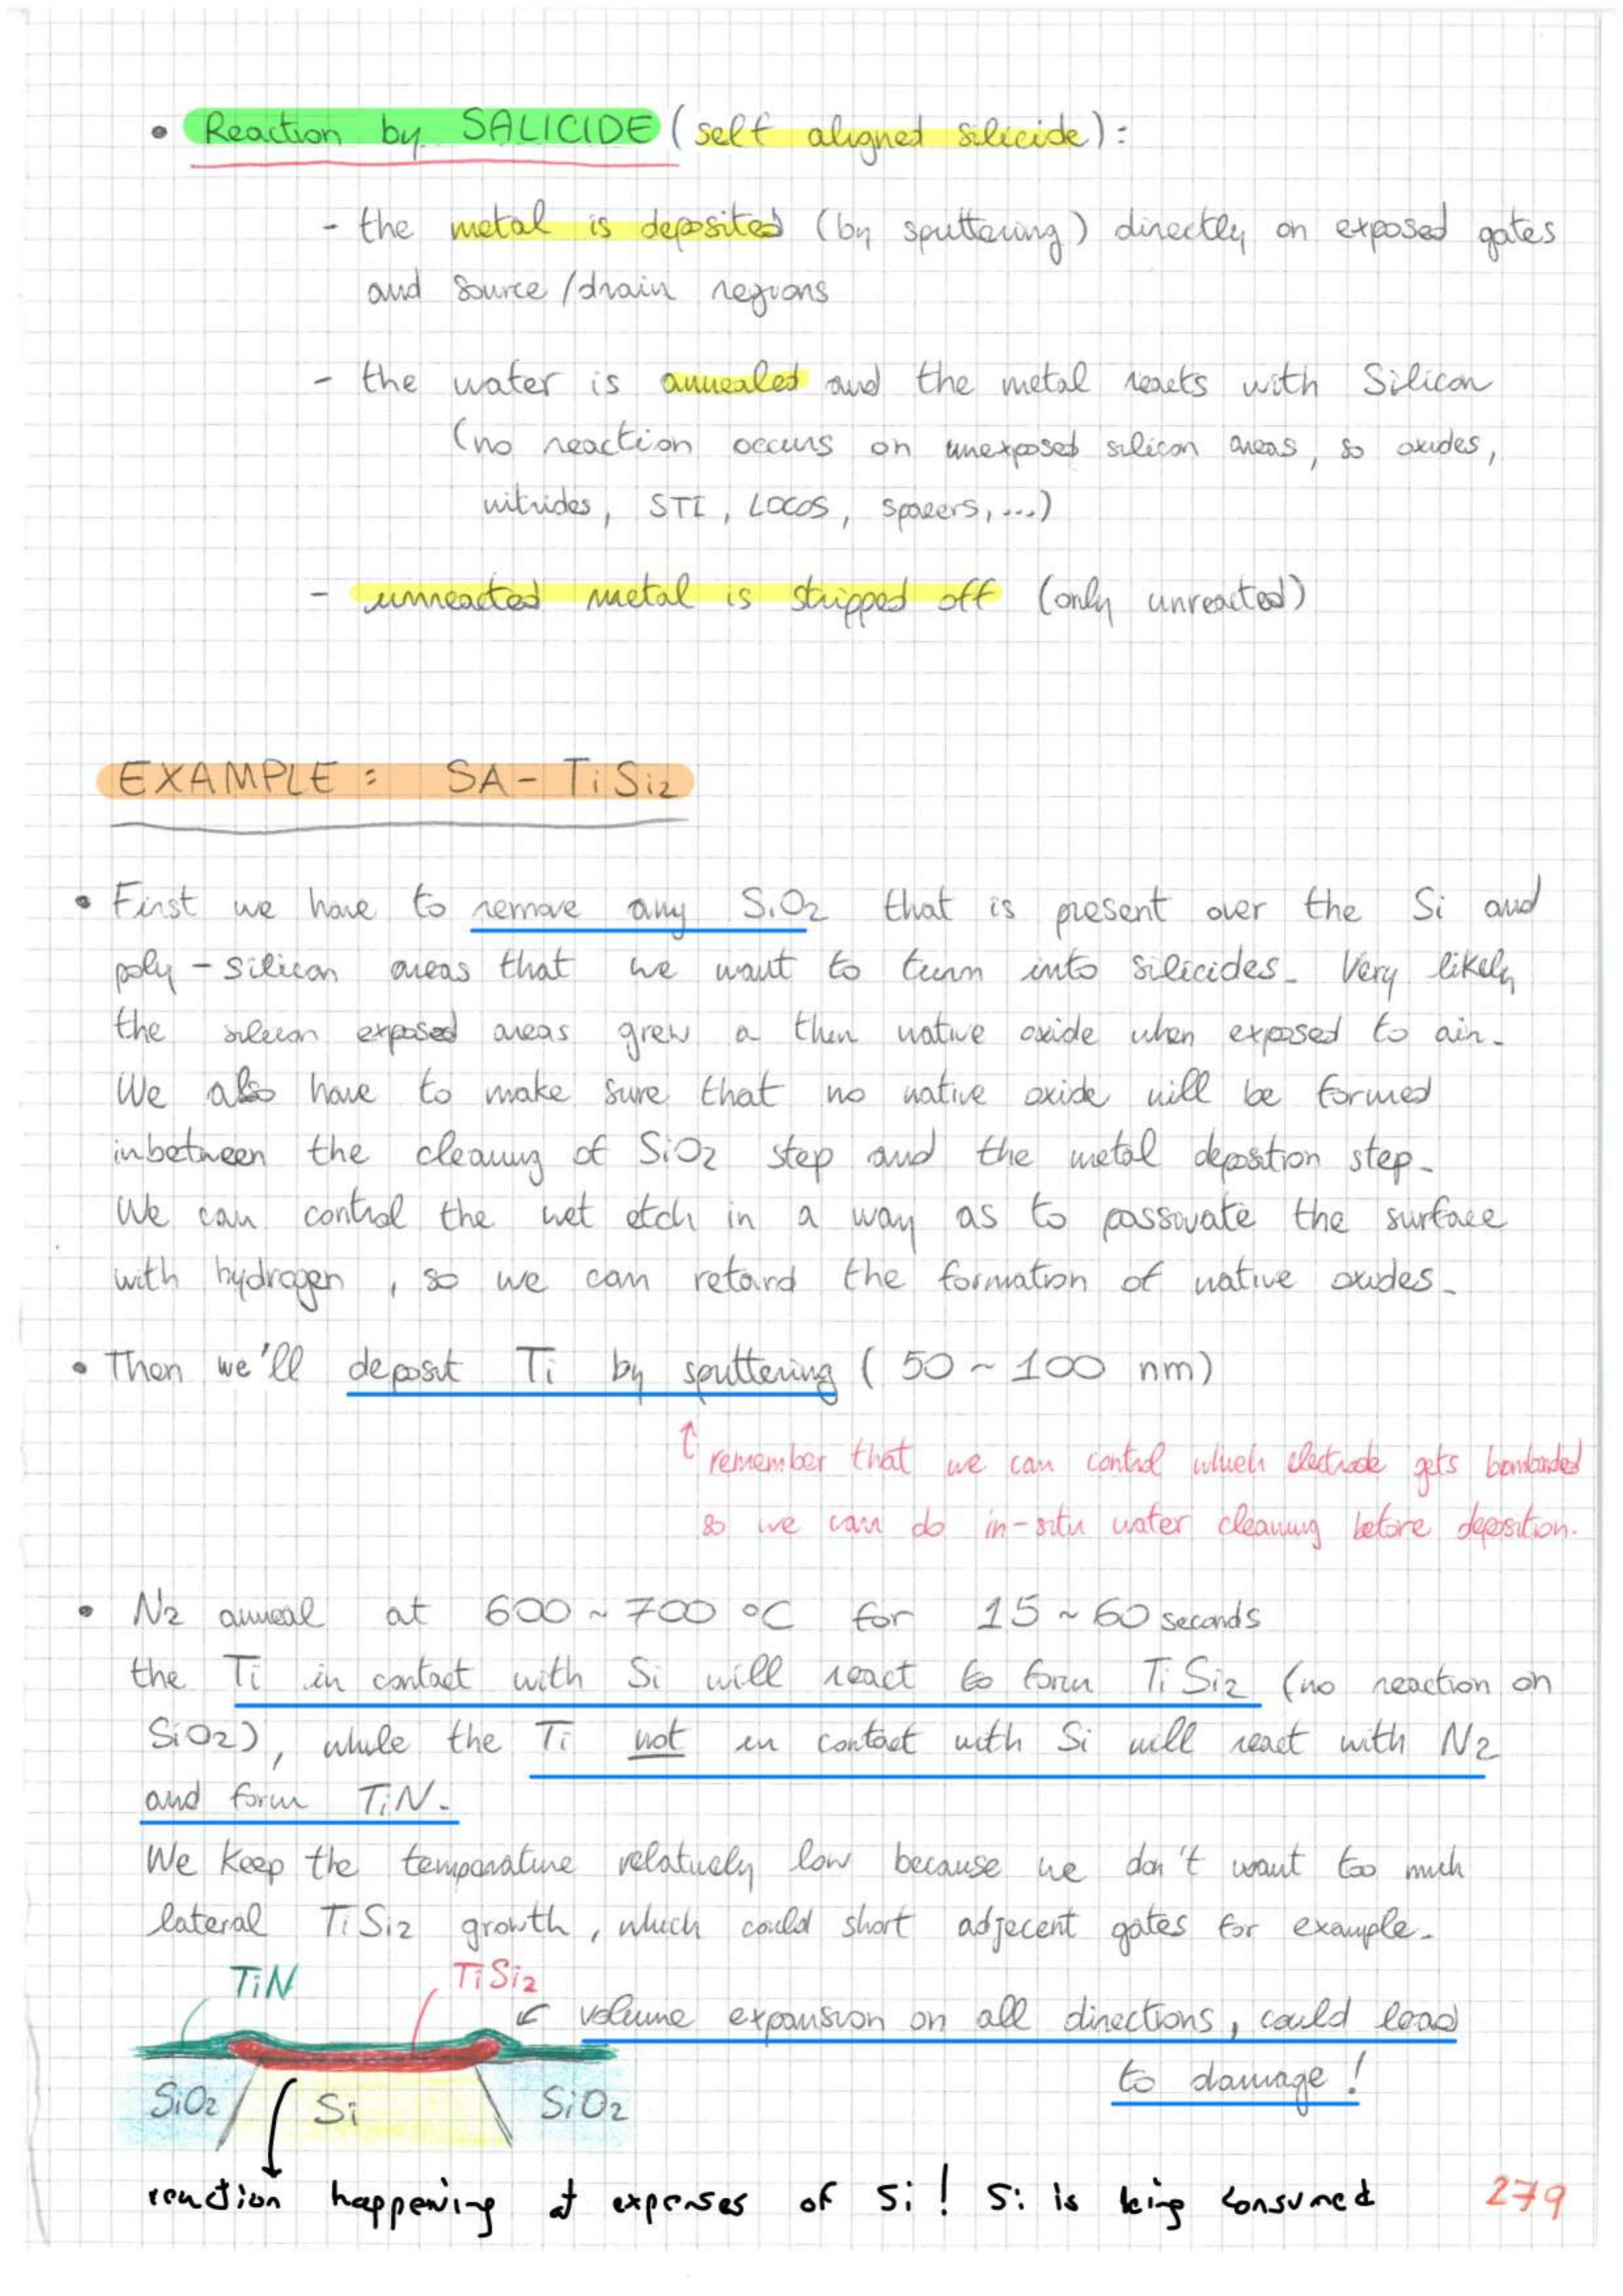 • Reaction by SALICIDE (self aligned silicide):
- the metal is deposited (by sputtering) directly on exposed gates
and source/drain regions
- the wafer is annealed and the metal reacts with Silicon
(no reaction occurs on unexposed silicon areas, so oxides,
nitrides, STI, LOCOS, spacers, ...)
- unreacted metal is stripped off (only unreacted)
EXAMPLE: SA-TiSi2
• First we have to remove any SiO2 that is present over the Si and
poly-silicon areas that we want to turn into silicides. Very likely
the silicon exposed areas grew a thin native oxide when exposed to air.
We also have to make sure that no native oxide will be formed
inbetween the cleaning of SiO2 step and the metal deposition step.
We can control the wet etch in a way as to passivate the surface
with hydrogen, so we can retard the formation of native oxides.
• Then we'll deposit Ti by sputtering (50 ~ 100 nm)
↑ remember that we can control which electrode gets bombarded
so we can do in-situ wafer cleaning before deposition.
• N2 anneal at 600 ~ 700 °C for 15 ~ 60 seconds
the Ti in contact with Si will react to form TiSi2 (no reaction on
SiO2), while the Ti not in contact with Si will react with N2
and form TiN.
We keep the temperature relatively low because we don't want too much
lateral TiSi2 growth, which could short adjecent gates for example.
TiN TiSi2
volume expansion on all directions, could lead
to damage!
SiO2 Si SiO2
reaction happening at expenses of Si! Si is being consumed
279